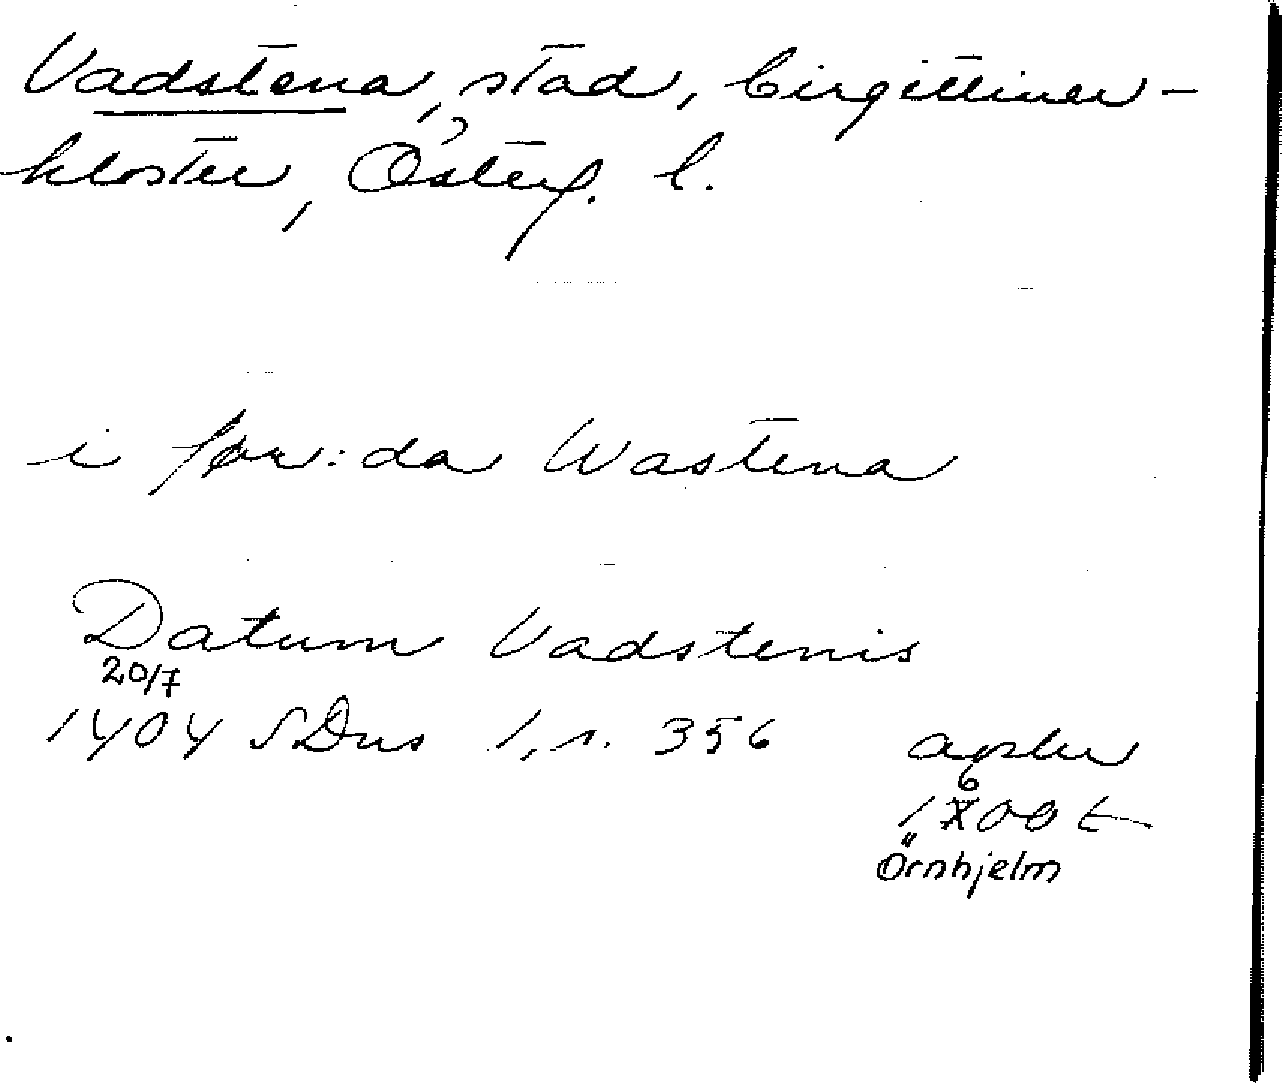 Vadstena, stad, birgittiner-
kloster, Österg. l.
i før:da Wastena
Datum Vadstenis
20/7
1404 SDns 1, s. 356 apskr
1600 t
Örnhjelm